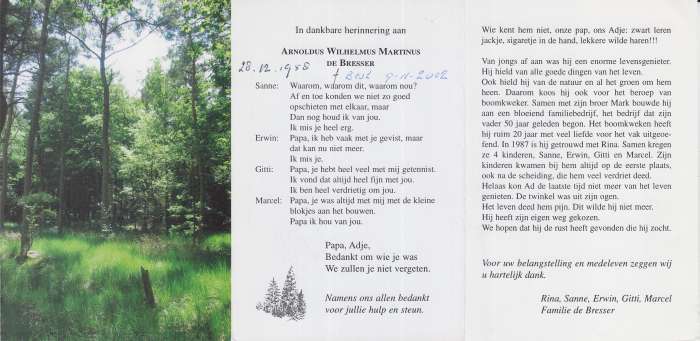 In dankbare herinnering aan
ARNOLDUS WILHELMUS MARTINUS
DE BRESSER
28.12.1958 † Best 9-11-2002
Sanne: Waarom, waarom dit, waarom nou?
Af en toe konden we niet zo goed
opschieten met elkaar, maar
Dan nog houd ik van jou.
Ik mis je heel erg.
Erwin: Papa, ik heb vaak met je gevist, maar
dat kan nu niet meer.
Ik mis je.
Gitti: Papa, je hebt heel veel met mij getennist.
Ik vond dat altijd heel fijn met jou.
Ik ben heel verdrietig om jou.
Marcel: Papa, je was altijd met mij met de kleine
blokjes aan het bouwen.
Papa ik hou van jou.
Papa, Adje,
Bedankt om wie je was
We zullen je niet vergeten.
Namens ons allen bedankt
voor jullie hulp en steun.
Wie kent hem niet, onze pap, ons Adje: zwart leren
jackje, sigaretje in de hand, lekkere wilde haren!!!
Van jongs af aan was hij een enorme levensgenieter.
Hij hield van alle goede dingen van het leven.
Ook hield hij van de natuur en al het groen om hem
heen. Daarom koos hij ook voor het beroep van
boomkweker. Samen met zijn broer Mark bouwde hij
aan een bloeiend familiebedrijf, het bedrijf dat zijn
vader 50 jaar geleden begon. Het boomkweken heeft
hij ruim 20 jaar met veel liefde voor het vak uitgeoe-
fend. In 1987 is hij getrouwd met Rina. Samen kregen
ze 4 kinderen, Sanne, Erwin, Gitti en Marcel. Zijn
kinderen kwamen bij hem altijd op de eerste plaats,
ook na de scheiding, die hem veel verdriet deed.
Helaas kon Ad de laatste tijd niet meer van het leven
genieten. De twinkel was uit zijn ogen.
Het leven deed hem pijn. Dit wilde hij niet meer.
Hij heeft zijn eigen weg gekozen.
We hopen dat hij de rust heeft gevonden die hij zocht.
Voor uw belangstelling en medeleven zeggen wij
u hartelijk dank.
Rina, Sanne, Erwin, Gitti, Marcel
Familie de Bresser